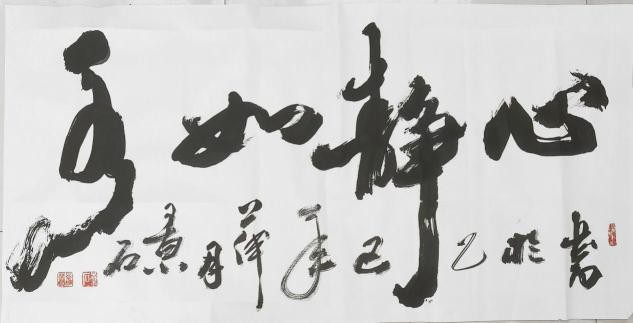 心静如水
書於乙巳年月石